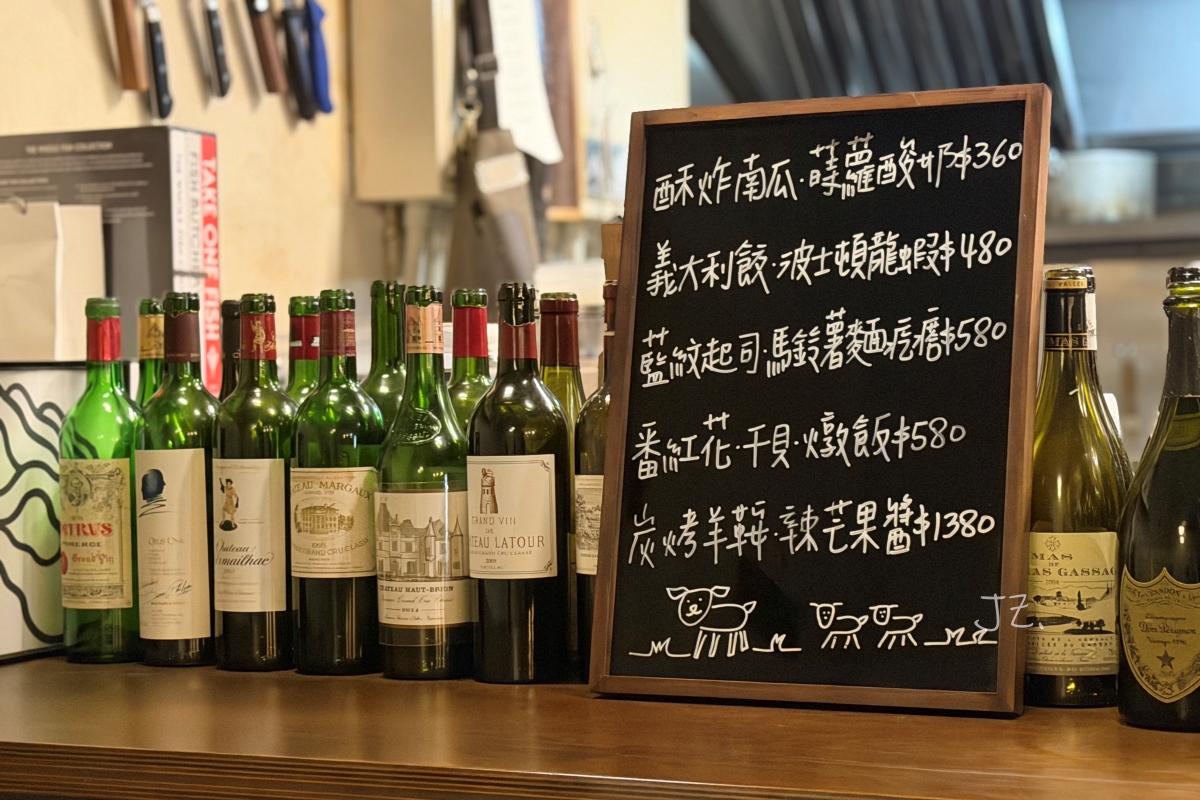 酥炸南瓜·蒔蘿酸奶$360
義大利餃·波士頓龍蝦$480
藍紋起司·馬鈴薯麵疙瘩$580
番紅花·干貝·燉飯$580
炭烤羊鞍·辣芒果醬$1380
JZ.
TAKE ONE FISH
FISH BUTCHERY
PETRVS
POMEROL
Grand Vin
Opus One
Château
d'Armailhac
CHATEAU MARGAUX
GRAND CRU CLASSÉ
CHATEAU HAUT-BRION
GRAND VIN
DE
CHATEAU LATOUR
MAS
DE
DAUMAS GASSAC
Dom Pérignon